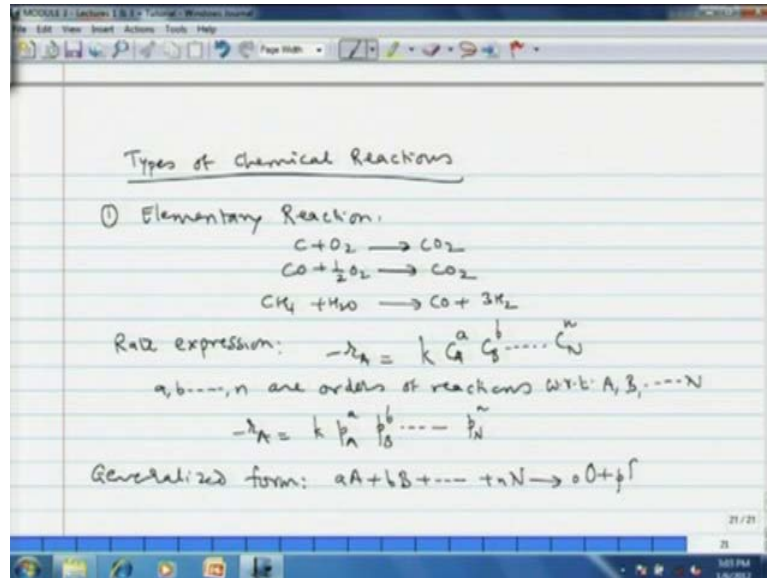 MODULE 3 - Lectures 1 & 2 + Tutorial - Windows Journal
File Edit View Insert Actions Tools Help
Page Width
Types of Chemical Reactions
① Elementary Reaction.
C + O₂ → CO₂
CO + ½ O₂ → CO₂
CH₄ + H₂O → CO + 3H₂
Rate expression: -r_A = k C_A^a C_B^b ..... C_N^n
a, b ----, n are orders of reactions w.r.t. A, B, ---- N
-r_A = k p_A^a p_B^b ---- p_N^n
Generalized form: aA + bB + ---- + nN → oO + p
21 / 21
21
3:03 PM